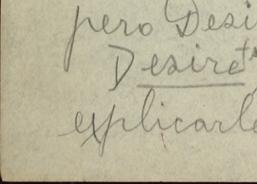 pero Desi
Desire
explicarle